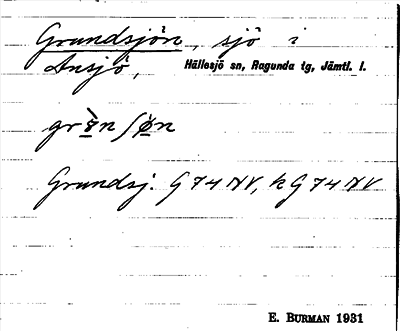 Grundsjön, sjö i
Ansjö, Hällesjö sn, Ragunda tg, Jämtl. l.
Grundsj. G 74 NV, k G 74 NV
E. BURMAN 1931